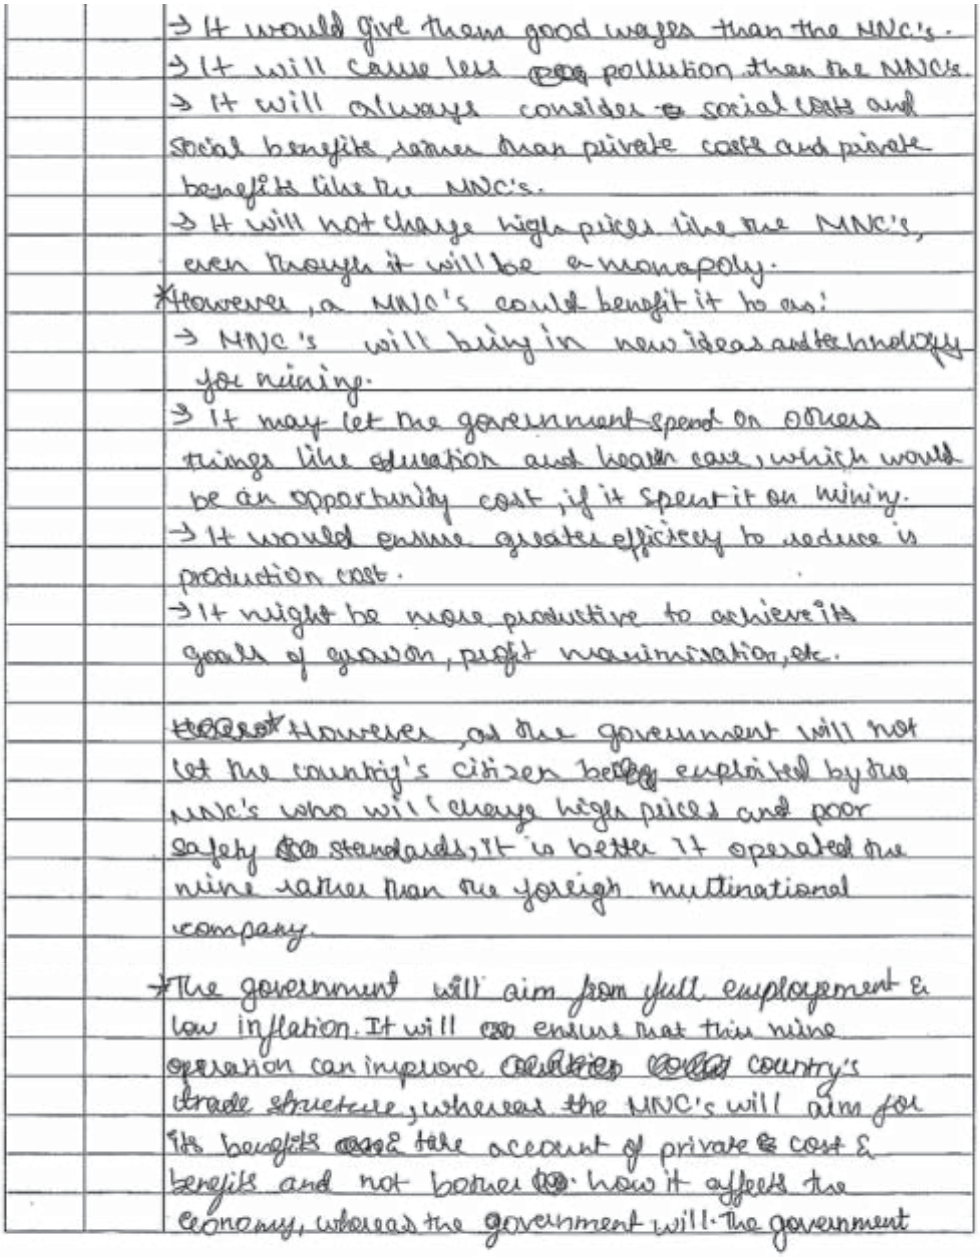 → It would give them good wages than the MNC's.
→ It will cause less pollution than the MNC's
→ It will always consider social costs and
social benefits, rather than private costs and private
benefits like the MNC's.
→ It will not charge high prices like the MNC's,
even though it will be a monopoly.
*However, a MNC's could benefit it to as:
→ MNC's will bring in new ideas and technology
for mining.
→ It may let the government spend on others
things like education and health care, which would
be an opportunity cost, if it spent it on mining.
→ It would ensure greater efficiecy to reduce is
production cost.
→ It might be more productive to achieve its
goals of growth, profit maximisation, etc.
* However, as the government will not
let the country's citizen being exploited by the
MNC's who will charge high prices and poor
safety standards, it is better it operated the
mine rather than the foreigh multinational
company.
→ The government will aim from full employement &
low inflation. It will ensure that this mine
operation can improve country's
trade structure, whereas the MNC's will aim for
its benefits & take account of private cost &
benefits and not bother how it affects the
economy, whereas the government will. The government